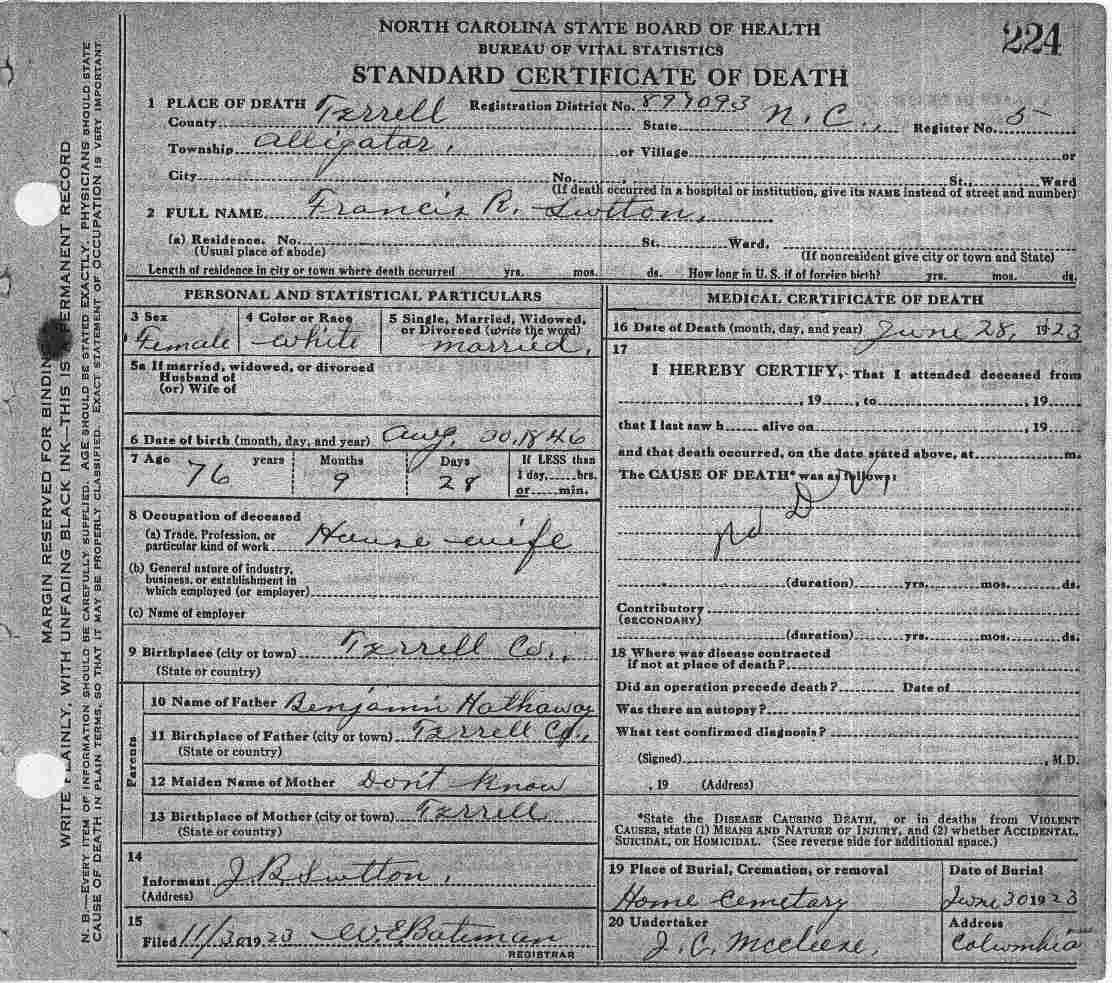 224
NORTH CAROLINA STATE BOARD OF HEALTH
BUREAU OF VITAL STATISTICS
STANDARD CERTIFICATE OF DEATH
1 PLACE OF DEATH Registration District No. 897093
County Tyrrell State N. C., Register No. 5
Township Alligator, or Village or
City No. St., Ward
(If death occurred in a hospital or institution, give its NAME instead of street and number)
2 FULL NAME Francis R. Swtton,
(a) Residence. No. St. Ward.
(Usual place of abode) (If nonresident give city or town and State)
Length of residence in city or town where death occurred yrs. mos. ds. How long in U. S. if of foreign birth? yrs. mos. ds.
PERSONAL AND STATISTICAL PARTICULARS
3 Sex
Female
4 Color or Race
White
5 Single, Married, Widowed,
or Divorced (write the word)
married,
5a If married, widowed, or divorced
Husband of
(or) Wife of
6 Date of birth (month, day, and year) Aug, 1846
7 Age 76 years
Months
9
Days
28
If LESS than
1 day, hrs.
or min.
8 Occupation of deceased
(a) Trade, Profession, or
particular kind of work House wife
(b) General nature of industry,
business, or establishment in
which employed (or employer)
(c) Name of employer
9 Birthplace (city or town) Tyrrell Co.,
(State or country)
Parents
10 Name of Father Benjamin Hathaway
11 Birthplace of Father (city or town) Tyrrell Co.,
(State or country)
12 Maiden Name of Mother Don't Know
13 Birthplace of Mother (city or town) Tyrrell
(State or country)
14
Informant J. B. Swtton,
(Address)
15
Filed 11/30 1923 W. E. Bateman
REGISTRAR
MEDICAL CERTIFICATE OF DEATH
16 Date of Death (month, day, and year) June 28, 1923
17
I HEREBY CERTIFY, That I attended deceased from
, 19 , to , 19
that I last saw h alive on , 19
and that death occurred, on the date stated above, at m.
The CAUSE OF DEATH* was as follows:
No D
(duration) yrs. mos. ds.
Contributory
(SECONDARY)
(duration) yrs. mos. ds.
18 Where was disease contracted
if not at place of death?
Did an operation precede death? Date of
Was there an autopsy?
What test confirmed diagnosis?
(Signed) , M.D.
, 19 (Address)
*State the DISEASE CAUSING DEATH, or in deaths from VIOLENT
CAUSES, state (1) MEANS AND NATURE OF INJURY, and (2) whether ACCIDENTAL,
SUICIDAL, OR HOMICIDAL. (See reverse side for additional space.)
19 Place of Burial, Cremation, or removal
Home Cemetary
Date of Burial
June 30 1923
20 Undertaker
J. C. McCleese,
Address
Columbia
MARGIN RESERVED FOR BINDING
WRITE PLAINLY, WITH UNFADING BLACK INK—THIS IS A PERMANENT RECORD
N. B.—EVERY ITEM OF INFORMATION SHOULD BE CAREFULLY SUPPLIED. AGE SHOULD BE STATED EXACTLY. PHYSICIANS SHOULD STATE
CAUSE OF DEATH IN PLAIN TERMS, SO THAT IT MAY BE PROPERLY CLASSIFIED. EXACT STATEMENT OF OCCUPATION IS VERY IMPORTANT.